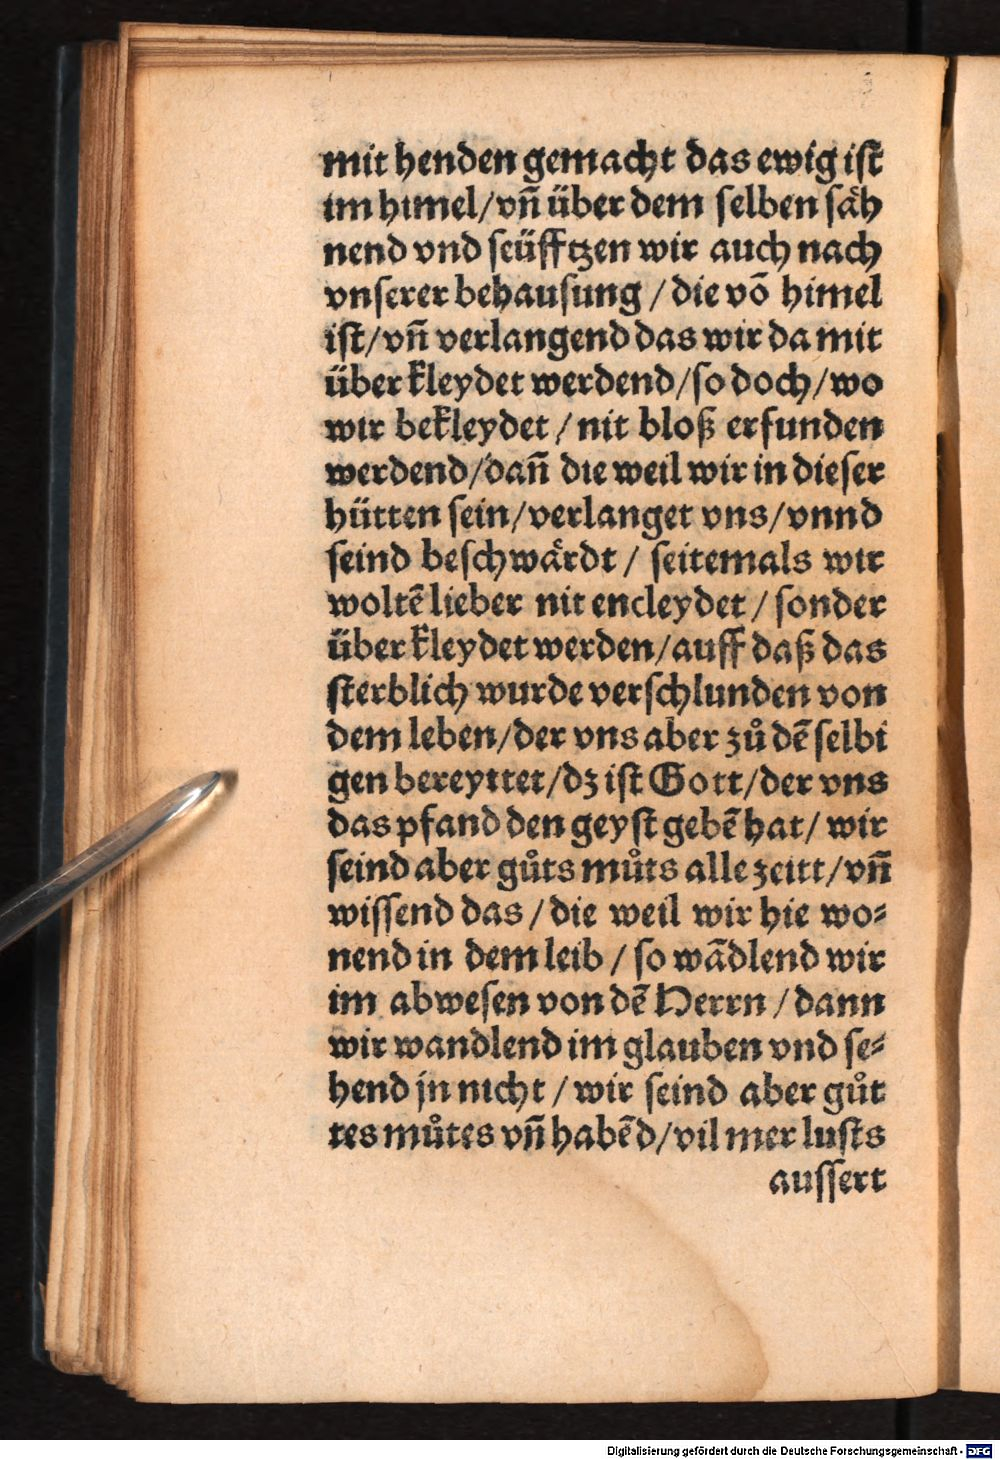 mit henden gemacht das ewig ist
im himel/vñ über dem selben säh
nend vnd seüfftzen wir auch nach
vnserer behausung / die võ himel
ist/vñ verlangend das wir da mit
über kleydet werdend/so doch/wo
wir bekleydet / nit bloß erfunden
werdend/dañ die weil wir in dieser
hütten sein/verlanget vns/vnnd
seind beschwärdt / seitemals wir
woltẽ lieber nit encleydet / sonder
über kleydet werden/auff daß das
sterblich wurde verschlunden von
dem leben/der vns aber zů dẽ selbi
gen bereyttet/dz ist Gott/der vns
das pfand den geyst gebẽ hat/ wir
seind aber gůts můts alle zeitt/vñ
wissend das / die weil wir hie wo⸗
nend in dem leib / so wãdlend wir
im abwesen von dẽ Herrn / dann
wir wandlend im glauben vnd se⸗
hend jn nicht / wir seind aber gůt
tes můtes vñ habẽd/vil mer lusts
aussert
Digitalisierung gefördert durch die Deutsche Forschungsgemeinschaft - DFG